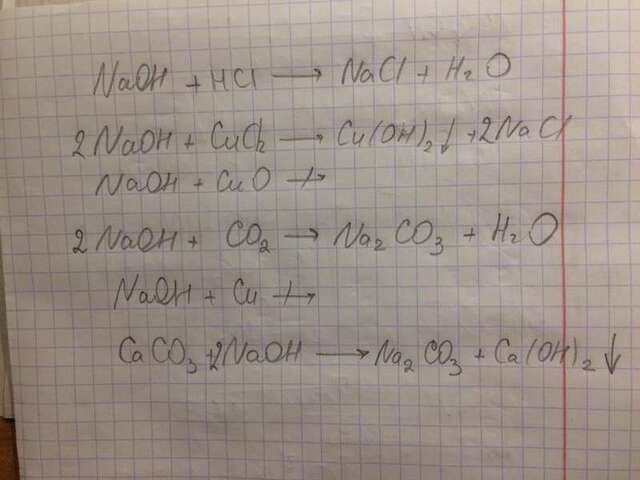 NaOH + HCl → NaCl + H₂O
2NaOH + CuCl₂ → Cu(OH)₂↓ + 2NaCl
NaOH + CuO ↛
2NaOH + CO₂ → Na₂CO₃ + H₂O
NaOH + Cu ↛
CaCO₃ + 2NaOH → Na₂CO₃ + Ca(OH)₂↓